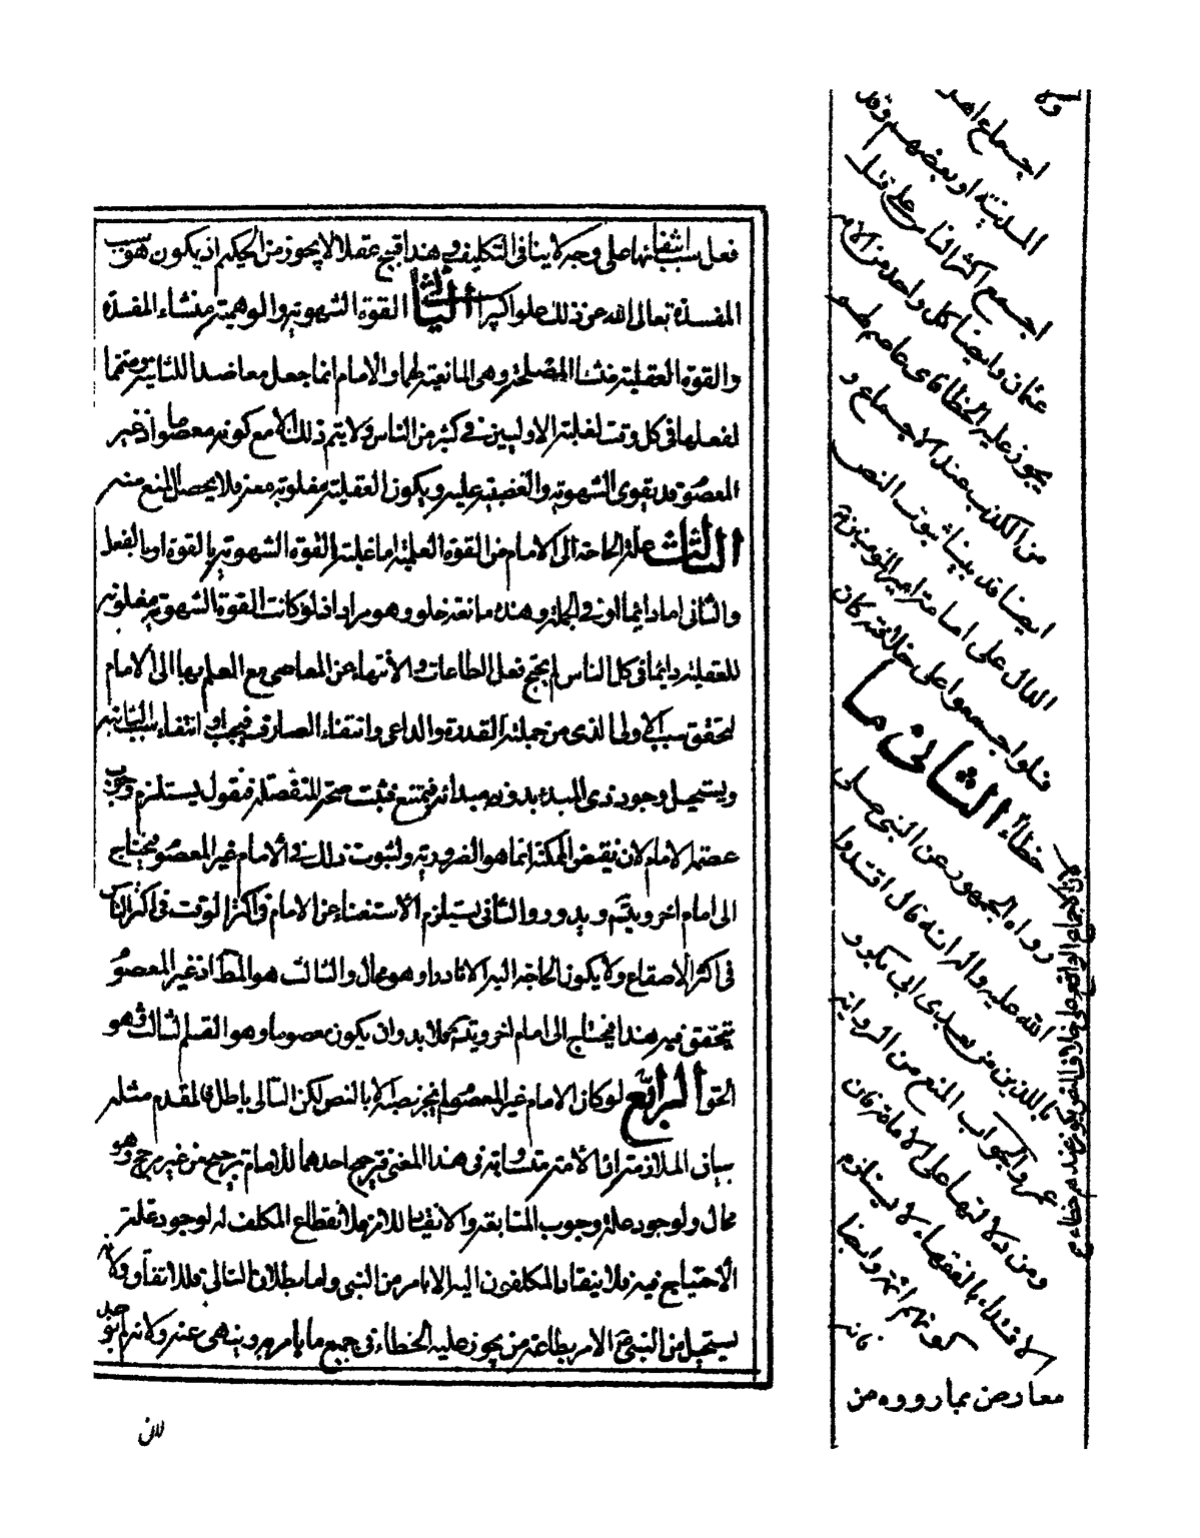 فعل سبب انتفائها على وجه لا ينافى التكليف وهذا قبيح عقلا لا يجوز من الحكيم اذ يكون هو سبب
المفسدة تعالى الله عن ذلك علوا كبيرا الثانى القوة الشهوية والوهمية منشاء المفسدة
والقوة العقلية منشا المصلحة وهى المانعة لهما والامام انما جعل معاضدا للثانية ومتمما
لفعلها فى كل وقت لغلبة الاوليين فى كثير من الناس ولا يتم ذلك الا مع كونه معصوما اذ غير
المعصوم قد تقوى الشهوية والغضبية عليه ويكون العقلية مغلوبة معه فلا يحصل المنع منه
الثالث علة الحاجة الى الامام من القوة العلمية اما غلبة القوة الشهوية بالقوة او بالفعل
والثانى اما دايما او فى الجملة وهذه مانعة خلو وهو مراد اذ لو كانت القوة الشهوية مغلوبة
للعقلية دايما فى كل الناس لم يحتج فعل الطاعات والانتهاء عن المعاصى مع العلم بها الى الامام
لتحقق سبب الاولى الذى من جملته القدرة والداعى وانتفاء الصارف فيجب وانتفاء سبب الثانية
ويستحيل وجود ذى المبدء بدون مبدائه فيمتنع فثبت صحة المنفصلة فنقول يستلزم وجوب
عصمة الامام لان نقيض الممكنة انما هو الضرورية ولثبوت ذلك فى الامام غير المعصوم فيحتاج
الى امام اخر ويتسلسل ويدور والثانى يستلزم الاستغناء عن الامام فى اكثر الوقت فى اكثر الناس
فى اكثر الاصقاع ولا يكون الحاجة اليه الا نادرا وهو محال والثالث هو المط اذ غير المعصوم
يتحقق فيه هذا فيحتاج الى امام اخر ويتسلسل فلا بد وان يكون معصوما وهو القسم الثالث وهو
الحق الرابع لو كان الامام غير المعصوم لم يجز نصبه لا بالنص لكن التالى باطل فالمقدم مثله
بيان الملازمة ان الامة متساوية فى هذا المعنى فترجيح احدهما للامامة ترجيح من غير مرجح وهو
محال ولوجود علة وجوب المتابعة والانقياد لانه لانقطاع المكلف له لوجود علة
الاحتياج فيه فلا ينقاد المكلفون اليه الا بامر من النبى واما بطلان التالى فللاتفاق ولانه
يستحيل من النبى ص الامر بطاعة من يجوز عليه الخطاء فى جميع ما يامر به وينهى عنه ولانه
لان
اجماع اهل
المدينة او بعضهم وقد
اجمع اكثر الناس على قتل
عثمان وايضا كل واحد من الامة
يجوز عليه الخطا فاى عاصم لهم
من الكذب عند الاجماع و
ايضا قد بينا ثبوت النص
الدال على امامة امير المؤمنين
فلو اجمعوا على خلافه كان
خطأ الثانى ما
رواه الجمهور عن النبى صلى
الله عليه واله انه قال اقتدوا
باللذين من بعدى ابى بكر و
عمر والجواب المنع من الرواية
ومن دلالتها على الامامة فان
الاقتداء بالفقهاء لا يستلزم
كونهم ائمة وايضا
فانه
معارض بما رووه من
لان الاجماع الواقع على خلاف النص يكون عندهم خطاء